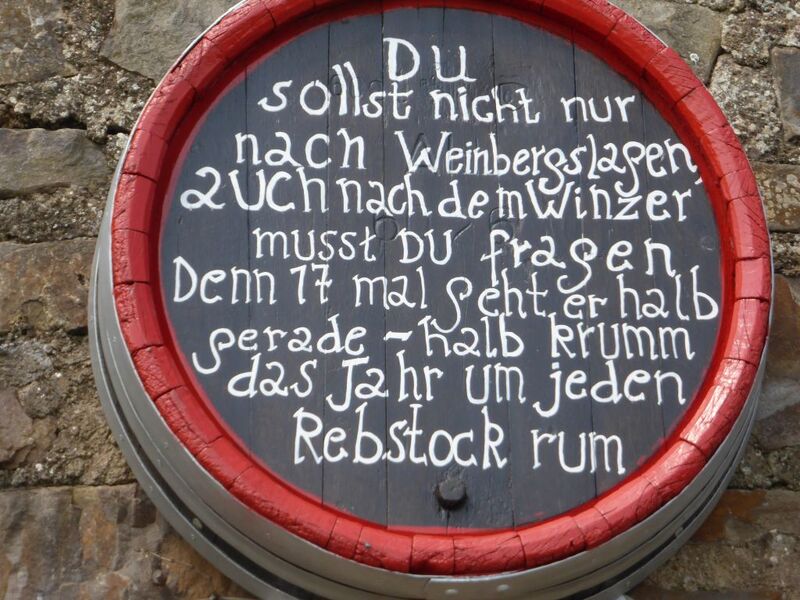 Du
sollst nicht nur
nach Weinbergslagen,
auch nach dem Winzer
musst Du fragen
Denn 17 mal geht er halb
gerade - halb krumm
das Jahr um jeden
Rebstock rum